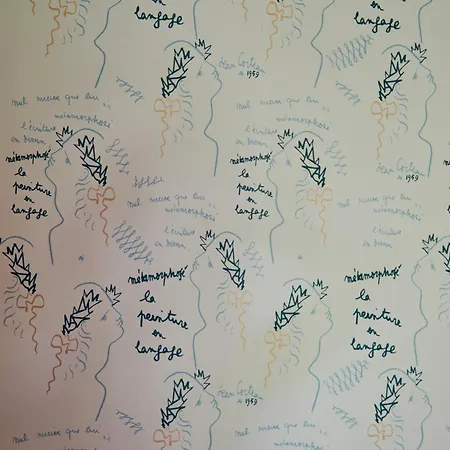 métamorphosé
la
peinture
en
langage
Jean Cocteau
1959
mal mieux que lui
métamorphosé
l'écriture
en dessin
métamorphosé
la
peinture
en
langage
métamorphosé
la
peinture
en
langage
Jean Cocteau
1959
mal mieux que lui
métamorphosé
l'écriture
en dessin
métamorphosé
la
peinture
en
langage
métamorphosé
la
peinture
en
langage
Jean Cocteau
1959
mal mieux que lui
mal mieux que lui
métamorphosé